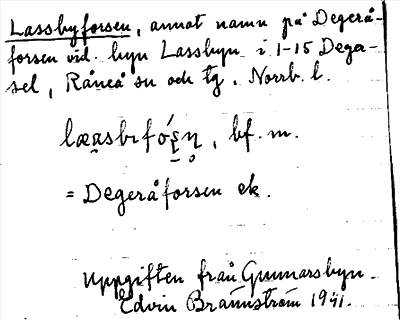 Lassbyforsen, annat namn på Degerå-
forsen vid byn Lassbyn i 1-15 Deger-
sel, Råneå sn och tg. Norrb. l.
bf. m.
= Degeråforsen ek.
Uppgiften från Gunnarsbyn.
Edvin Brännström 1941.